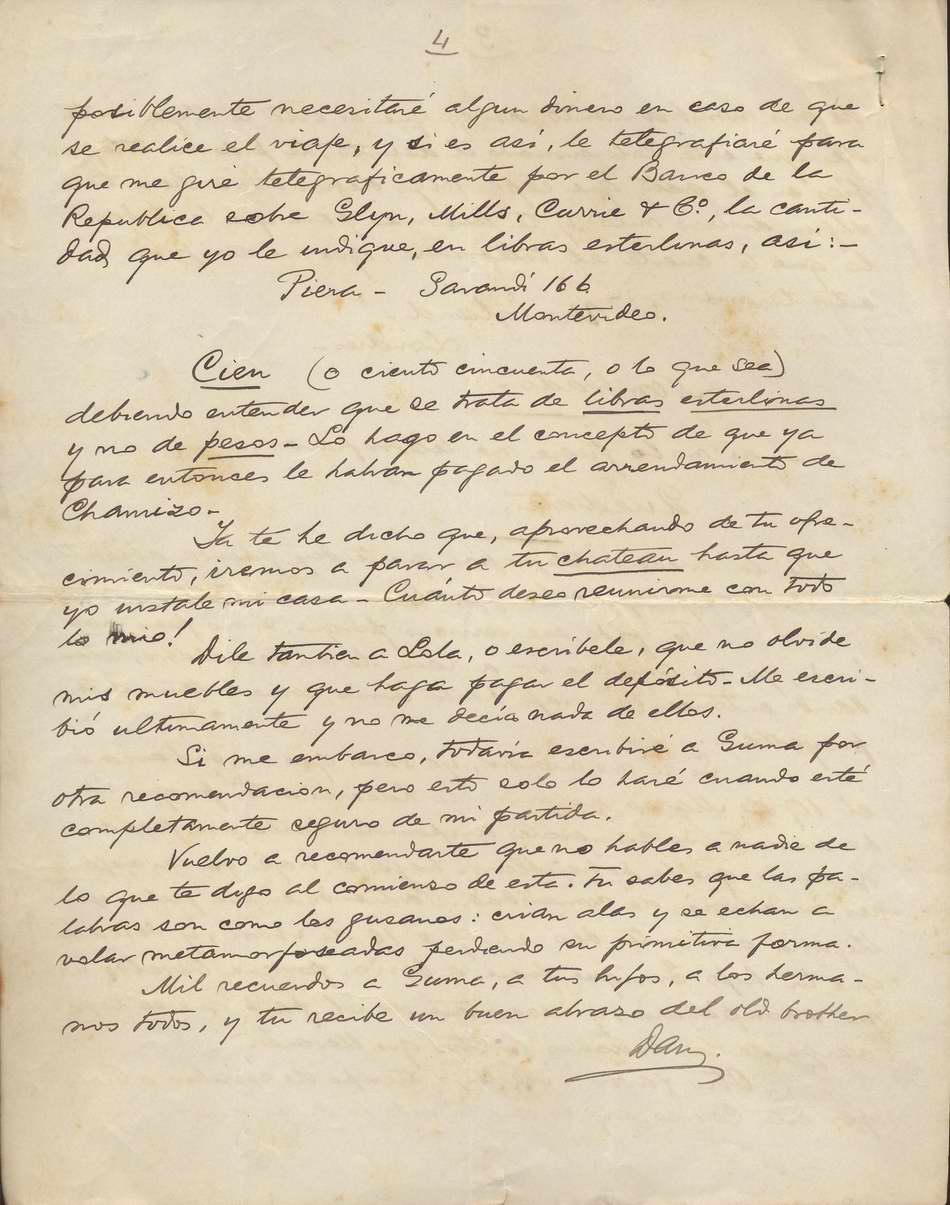 4
posiblemente necesitaré algun dinero en caso de que
se realice el viaje, y si es así, le telegrafiaré para
que me gire telegraficamente por el Banco de la
Republica sobre Glyn, Mills, Currie & Cº, la canti-
dad, que yo le indique, en libras esterlinas, así:-
Piera - Sarandí 166
Montevideo.
Cien (o ciento cincuenta, o lo que sea)
debiendo entender que se trata de libras esterlinas
y no de pesos - Lo hago en el concepto de que ya
para entonces le habran pagado el arrendamiento de
Chamizo -
Ya te he dicho que, aprovechando de tu ofre-
cimiento, iremos a parar a tu chateau hasta que
yo instale mi casa - Cuánto deseo reunirme con todo
lo mio!
Dile tambien a Lola, o escribele, que no olvide
mis muebles y que haga pagar el depósito - Me escri-
bió ultimamente y no me decía nada de ellos.
Si me embarco, todavía escribiré a Guma por
otra recomendacion, pero esto solo lo haré cuando esté
completamente seguro de mi partida.
Vuelvo a recomendarte que no hables a nadie de
lo que te digo al comienzo de esta. Tu sabes que las pa-
labras son como los gusanos: crian alas y se echan a
volar metamorfoseadas perdiendo su primitiva forma.
Mil recuerdos a Guma, a tus hijos, a los herma-
nos todos, y tu recibe un buen abrazo del old brother